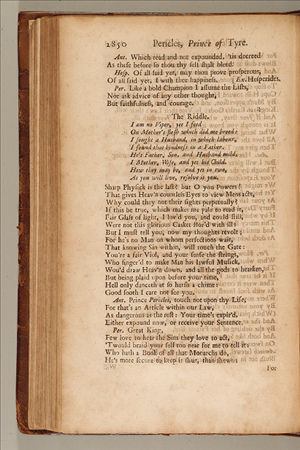 2850 Pericles, Prince of Tyre.
Ant. Which read and not expounded, 'tis decreed
As these before so thou thy self shalt bleed.
Hesp. Of all said yet, may thou prove prosperous,
Of all said yet, I wish thee happiness. Ex. Hesperides.
Per. Like a bold Champion I assume the Lists,
Nor ask advice of any other thought,
But faithfulness, and courage.
The Riddle.
I am no Viper, yet I feed
On Mother's flesh which did me breed:
I sought a Husband, in which labour,
I found that kindness in a Father.
He's Father, Son, and Husband mild,
I Mother, Wife, and yet his Child.
How they may be, and yet in two,
As you will live, resolve it you.
Sharp Physick is the last: but O you Powers!
That gives Heav'n countless Eyes to view Mens acts,
Why could they not their sights perpetually?
If this be true, which makes me pale to read it,
Fair Glass of light, I lov'd you, and could still,
Were not this glorious Casket stor'd with ill:
But I must tell you, now my thoughts revolt;
For he's no Man on whom perfections wait,
That knowing Sin within, will touch the Gate:
You're a fair Viol, and your sense the strings,
Who finger'd to make Man his lawful Musick,
Wou'd draw Heav'n down, and all the gods to hearken;
But being plaid upon before your time,
Hell only danceth at so harsh a chime:
Good sooth I care not for you.
Ant. Prince Pericles, touch not upon thy Life,
For that's an Article within our Law,
As dangerous as the rest: Your time's expir'd,
Either expound now, or receive your Sentence.
Per. Great King,
Few love to hear the Sins they love to act,
'Twould braid your self too near for me to tell it:
Who hath a Book of all that Monarchs do,
He's more secure to keep it shut, than shewn:
For